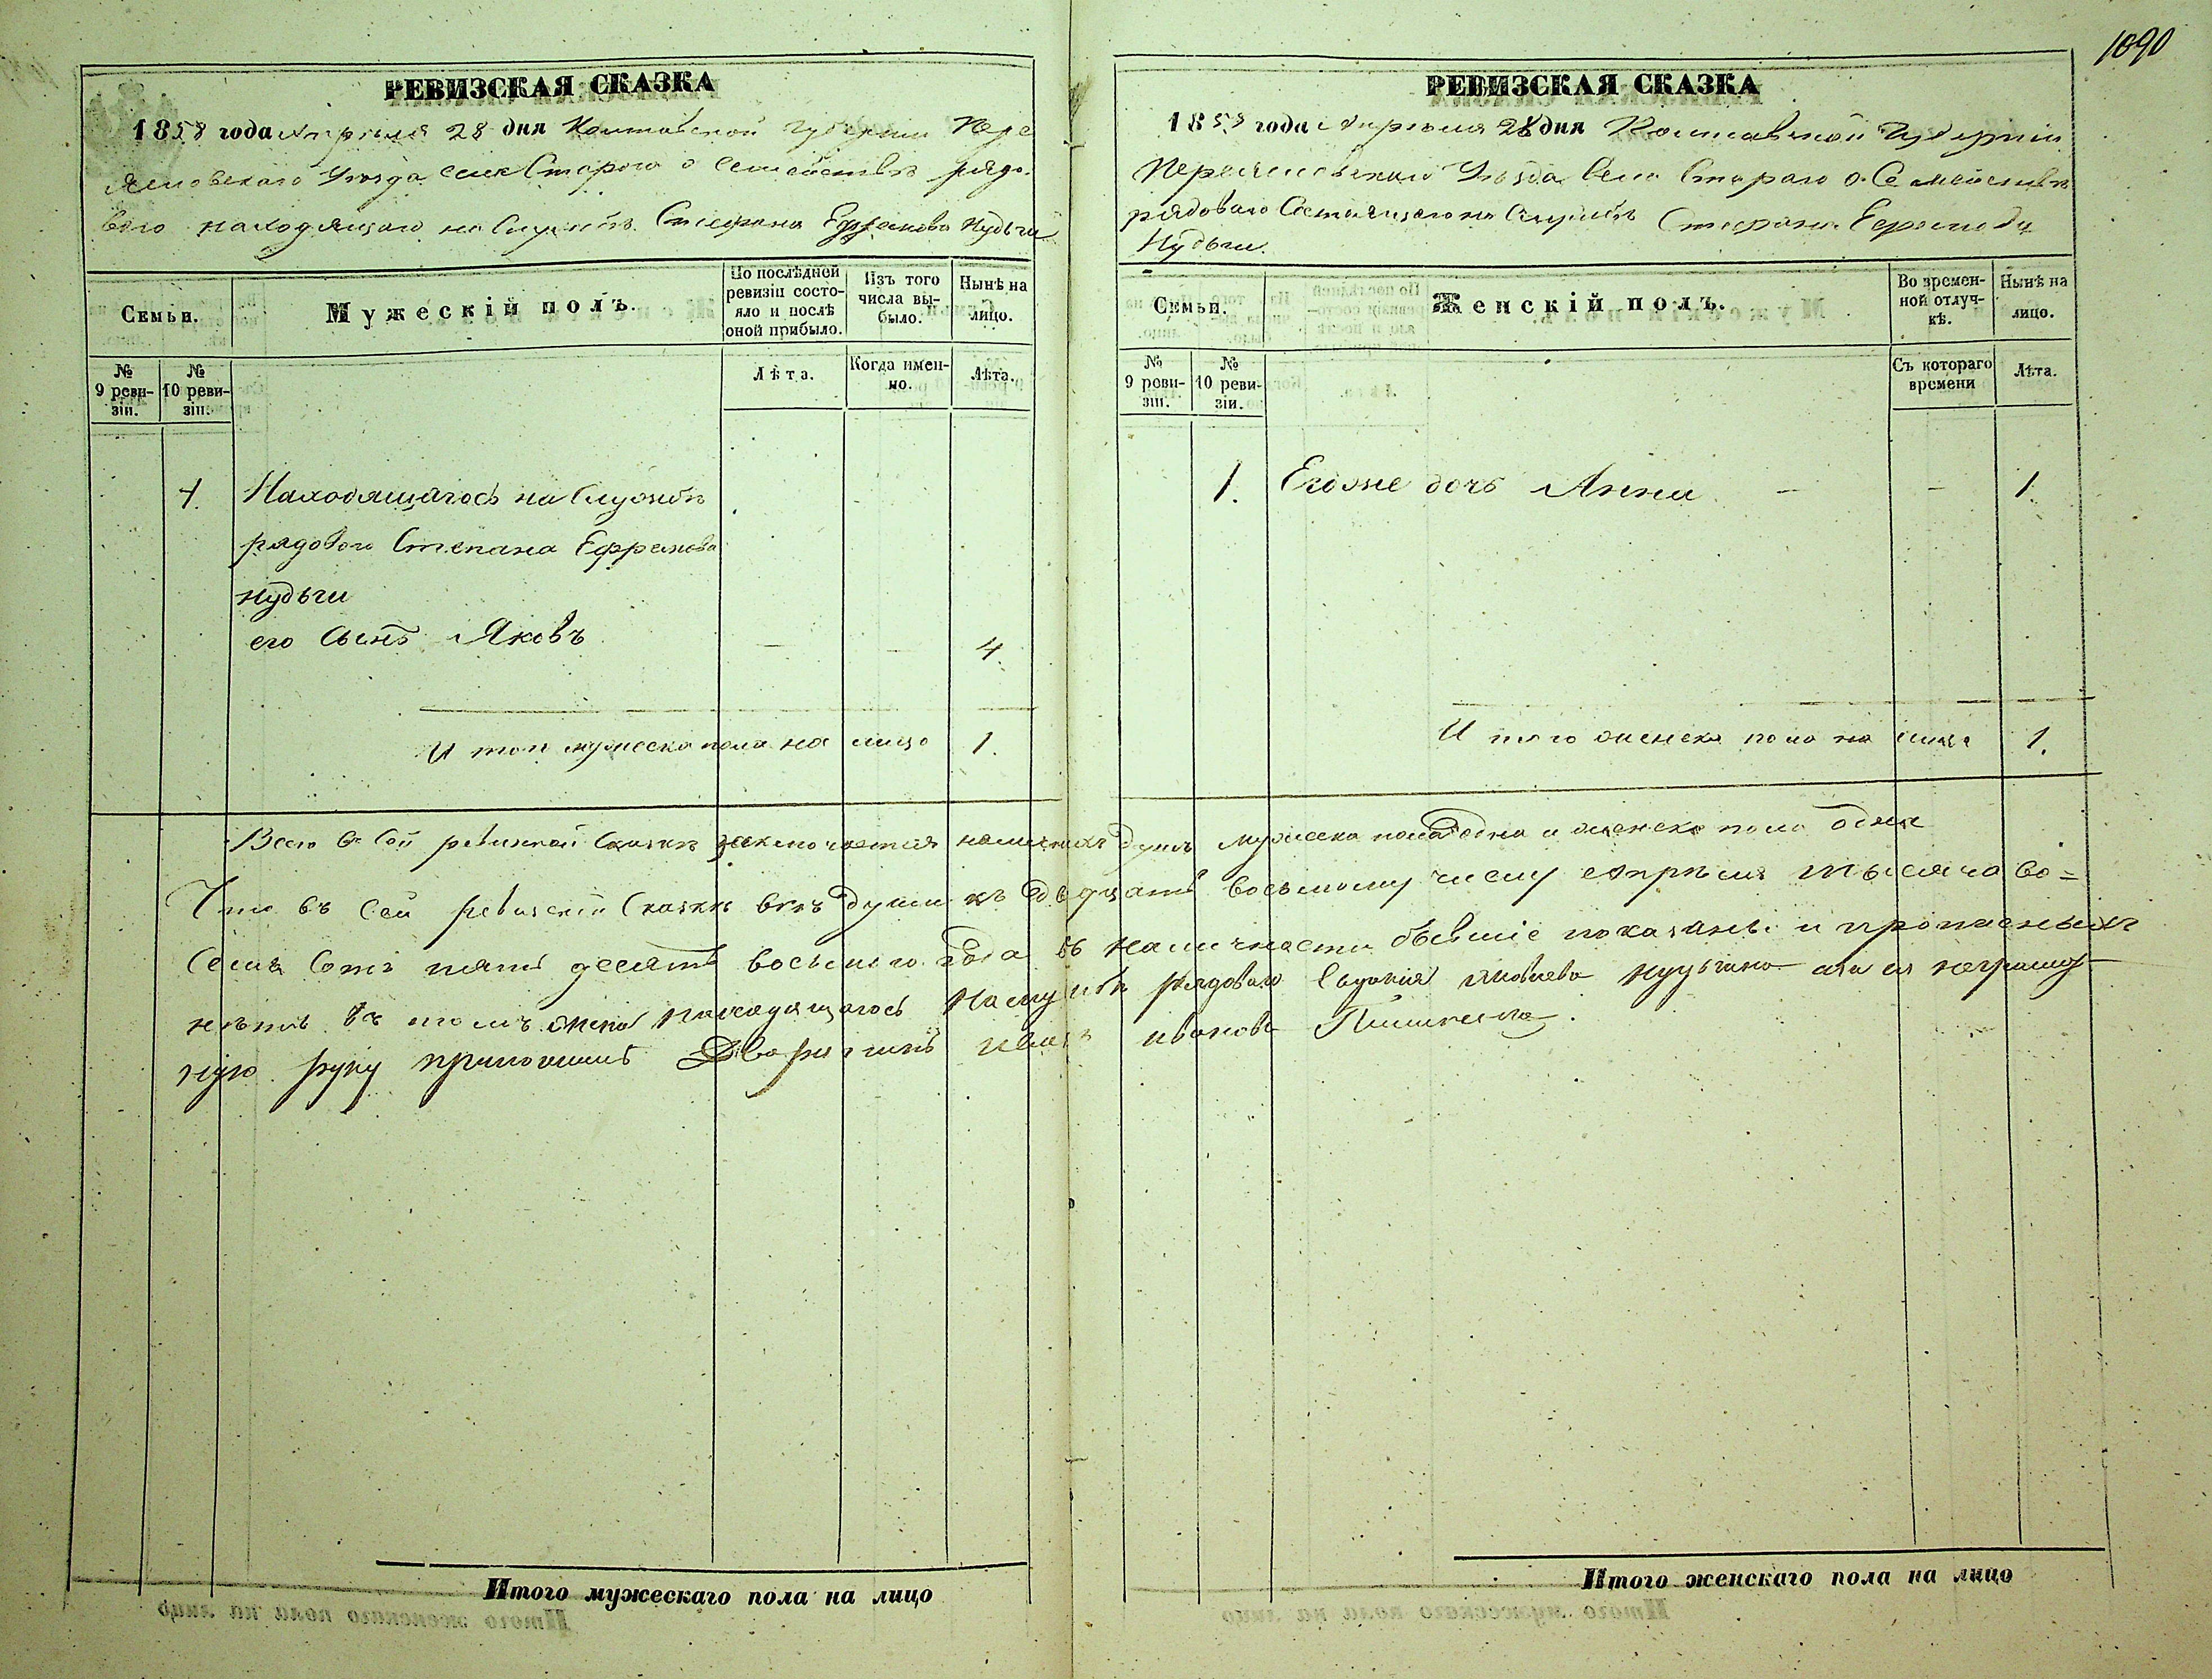 1090
РЕВИЗСКАЯ СКАЗКА
1858 года Апреля 28 дня Полтавской Губернии Пере
яславскаго Уезда села Старого о Семействѣ рядо-
вого находящаго на Службѣ Стефана Ефремова Нудьги
Семьи.
Мужескій полъ.
По послѣдней ревизіи состо-
яло и послѣ оной прибыло.
Изъ того числа вы-
было.
Нынѣ на лицо.
№ 9 реви-
зіи.
№ 10 реви-
зіи.
Лѣта.
Когда имен-
но.
Лѣта.
1. Находящагось на Службѣ
рядового Степана Ефремова
Нудьги
его Сынъ Яковъ — — 4.
Итого мужеска пола на лицо 1.
РЕВИЗСКАЯ СКАЗКА
1858 года Апреля 28 дня Полтавской Губерніи
Переяславскаго Уѣзда Села Стараго о Семействѣ
рядоваго Состаящего на Службѣ Стефана Ефремова
Нудьги.
Семьи.
Женскій полъ.
Во времен-
ной отлуч-
кѣ.
Нынѣ на лицо.
№ 9 реви-
зіи.
№ 10 реви-
зіи.
Съ котораго времени
Лѣта.
1. Егоже дочь Анна — — 1.
Итого женска пола на лицо 1.
Всего в Сей ревизкой Сказкѣ заключается наличныхъ душъ мужеска пола одна и женска пола одна
Что въ Сей ревизской Сказкѣ всѣ души къ двадцать восьмому числу апрѣля тысяча во=
семь Сотъ пять десятъ восьмого года въ наличности бывшіе показаны и прописныхъ
нѣтъ въ томъ жена находящагось на службѣ рядоваго Евдокія Нудьгина а за ея неграмот-
ную руку приложилъ Дворянинъ Иванъ Иванова
Итого мужескаго пола на лицо
Итого женскаго пола на лицо